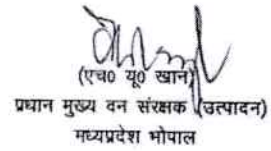 (एच० यू० खान)
प्रधान मुख्य वन संरक्षक (उत्पादन)
मध्यप्रदेश भोपाल